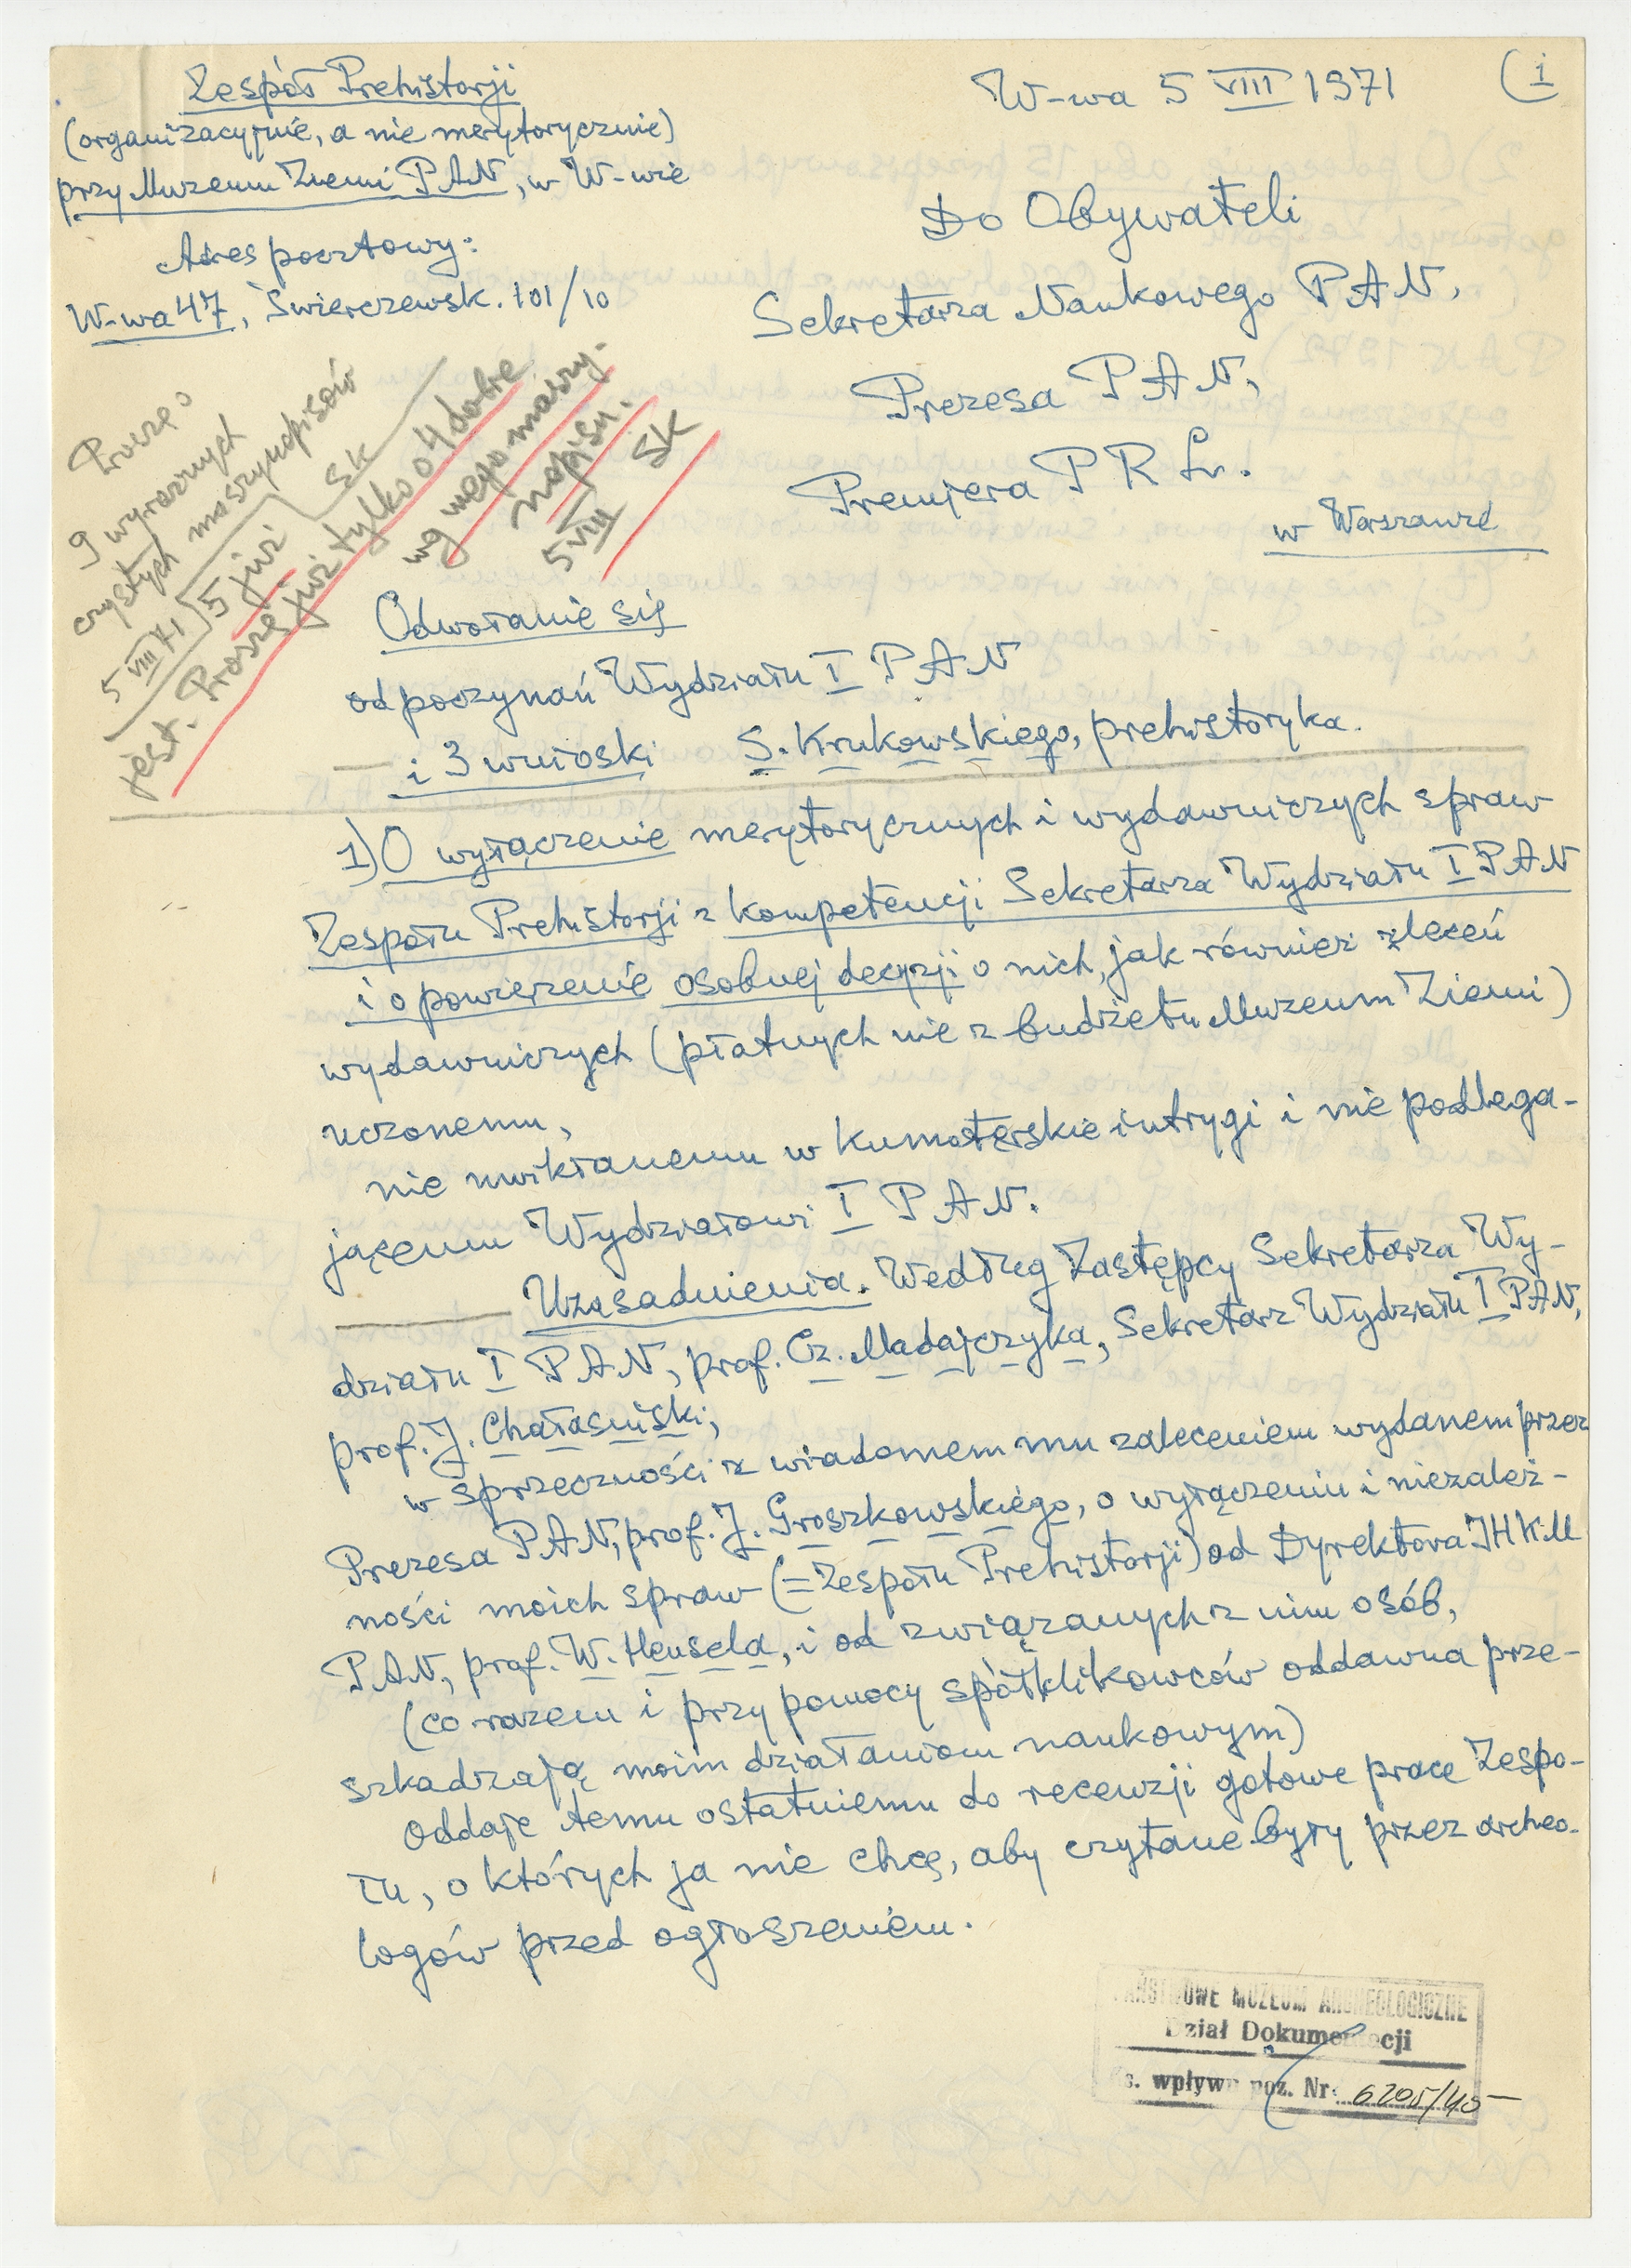 Zespół Prehistorji
(organizacyjnie, a nie merytorycznie)
przy Muzeum Ziemi PAN, w W-wie
Adres pocztowy:
W-wa 47, Świerczewsk. 101/10
W-wa 5 VIII 1971
(1
Do Obywateli
Sekretarza Naukowego PAN,
Prezesa PAN,
Premjera PRL.
w Warszawie
Proszę o
9 wyraznych
czystych maszynopisów
5 VIII 71 SK
5 już
jest. Proszę już tylko o 4 dobre
wg mego maszy-
nopisu.
5 VIII SK
Odwołanie się
od poczynań Wydziału I PAN
i 3 wnioski S. Krukowskiego, prehistoryka.
1) O wyłączenie merytorycznych i wydawniczych spraw
Zespołu Prehistorji z kompetencji Sekretarza Wydziału I PAN
i o powierzenie osobnej decyzji o nich, jak również zleceń
wydawniczych (płatnych nie z budżetu Muzeum Ziemi)
uczonemu,
nie uwikłanemu w kumoterskie intrygi i nie podlega-
jącemu Wydziałowi I PAN.
Uzasadnienia. Według Zastępcy Sekretarza Wy-
działu I PAN, prof. Cz. Madajczyka, Sekretarz Wydziału I PAN,
prof. J. Chałasiński,
w sprzeczności z wiadomem mu zaleceniem wydanem przez
Prezesa PAN, prof. J. Groszkowskiego, o wyłączeniu i niezależ-
ności moich spraw (=Zespołu Prehistorji) od Dyrektora IHKM
PAN, prof. W. Hensela, i od związanych z nim osób,
(co razem i przy pomocy spółklikowców oddawna prze-
szkadzają moim działaniom naukowym)
oddaje temu ostatniemu do recenzji gotowe prace Zespo-
łu, o których ja nie chcę, aby czytane były przez archeo-
logów przed ogłoszeniem.
PAŃSTWOWE MUZEUM ARCHEOLOGICZNE
Dział Dokumentacji
Ks. wpływu poz. Nr. 6205/40